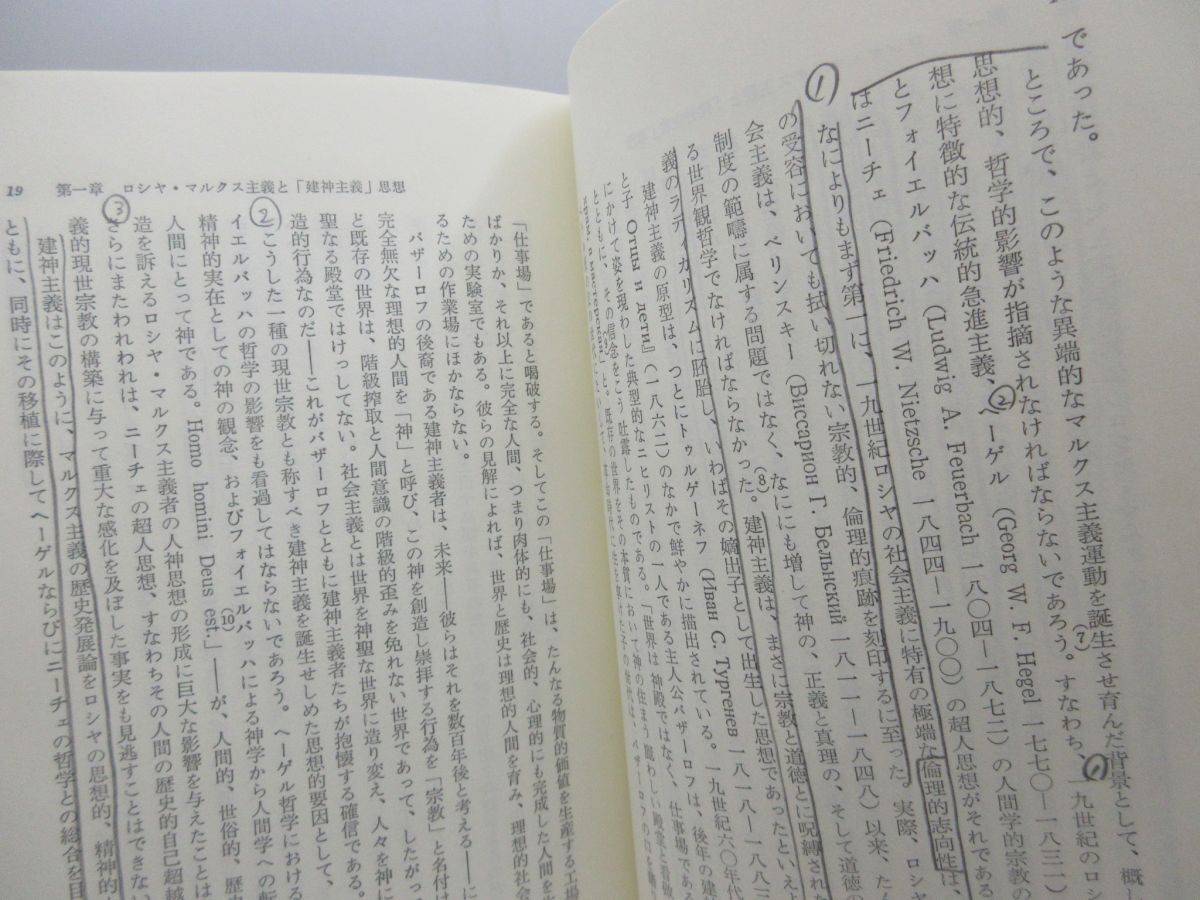 であった。
ところで、このような異端的なマルクス主義運動を誕生させ育んだ背景として、概し
思想的、哲学的影響が指摘されなければならないであろう。(7)すなわち、①一九世紀のロシ
想に特徴的な伝統的急進主義、②ヘーゲル（Georg W. F. Hegel 一七七〇―一八三一）
とフォイエルバッハ（Ludwig A. Feuerbach 一八〇四―一八七二）の人間学的宗教の
はニーチェ（Friedrich W. Nietzsche 一八四四―一九〇〇）の超人思想がそれである
① なによりもまず第一に、一九世紀ロシヤの社会主義に特有の極端な倫理的志向性は、
の受容においても拭い切れない宗教的、倫理的痕跡を刻印するに至った。実際、ロシ
会主義は、ベリンスキー（Виссарион Г. Белынский 一八一一―一八四八）以来、たん
制度の範疇に属する問題ではなく、なににも増して神の、正義と真理の、そして道徳の
る世界観哲学でなければならなかった。(8)建神主義は、まさに宗教と道徳とに呪縛された
義のラディカリズムに胚胎し、いわばその嫡出子として出生した思想であったといえよ
建神主義の原型は、つとにトゥルゲーネフ（Иван С. Тургенев 一八一八―一八八三
と子 Отцы и дети』（一八六二）のなかで鮮やかに描出されている。一九世紀六〇年代
にかけて姿を現わした典型的なニヒリストの一人である主人公バザーロフは、後年の建
とともに、その信念をこう吐露したものである。「世界は神殿ではなく、仕事場である
19 第一章 ロシヤ・マルクス主義と「建神主義」思想
「仕事場」であると喝破する。そしてこの「仕事場」は、たんなる物質的価値を生産する工場
ばかりか、それ以上に完全な人間、つまり肉体的にも、社会的、心理的にも完成した人間を
ための実験室でもある。彼らの見解によれば、世界と歴史は理想的人間を育み、理想的社会
るための作業場にほかならない。
バザーロフの後裔である建神主義者は、未来――彼らはそれを数百年後と考える――に
完全無欠な理想的人間を「神」と呼び、この神を創造し崇拝する行為を「宗教」と名付け
と既存の世界は、階級搾取と人間意識の階級的歪みを免れない世界であって、したがっ
聖なる殿堂ではけっしてない。社会主義とは世界を神聖な世界に造り変え、人々を神に
造的行為なのだ――これがバザーロフとともに建神主義者たちが抱懐する確信である。
② こうした一種の現世宗教とも称すべき建神主義を誕生せしめた思想的要因として、
イエルバッハの哲学の影響をも看過してはならないであろう。ヘーゲル哲学における
精神的実在としての神の観念、およびフォイエルバッハによる神学から人間学への転
人間にとって神である。Homo homini Deus est.」(10)――が、人間的、世俗的、歴
造を訴えるロシヤ・マルクス主義者の人神思想の形成に巨大な影響を与えたことは
③ さらにまたわれわれは、ニーチェの超人思想、すなわちその人間の歴史的自己超越
義的現世宗教の構築に与って重大な感化を及ぼした事実をも見逃すことはできない
建神主義はこのように、マルクス主義の歴史発展論をロシヤの思想的、精神的
ともに、同時にその移植に際してヘーゲルならびにニーチェの哲学との総合を目